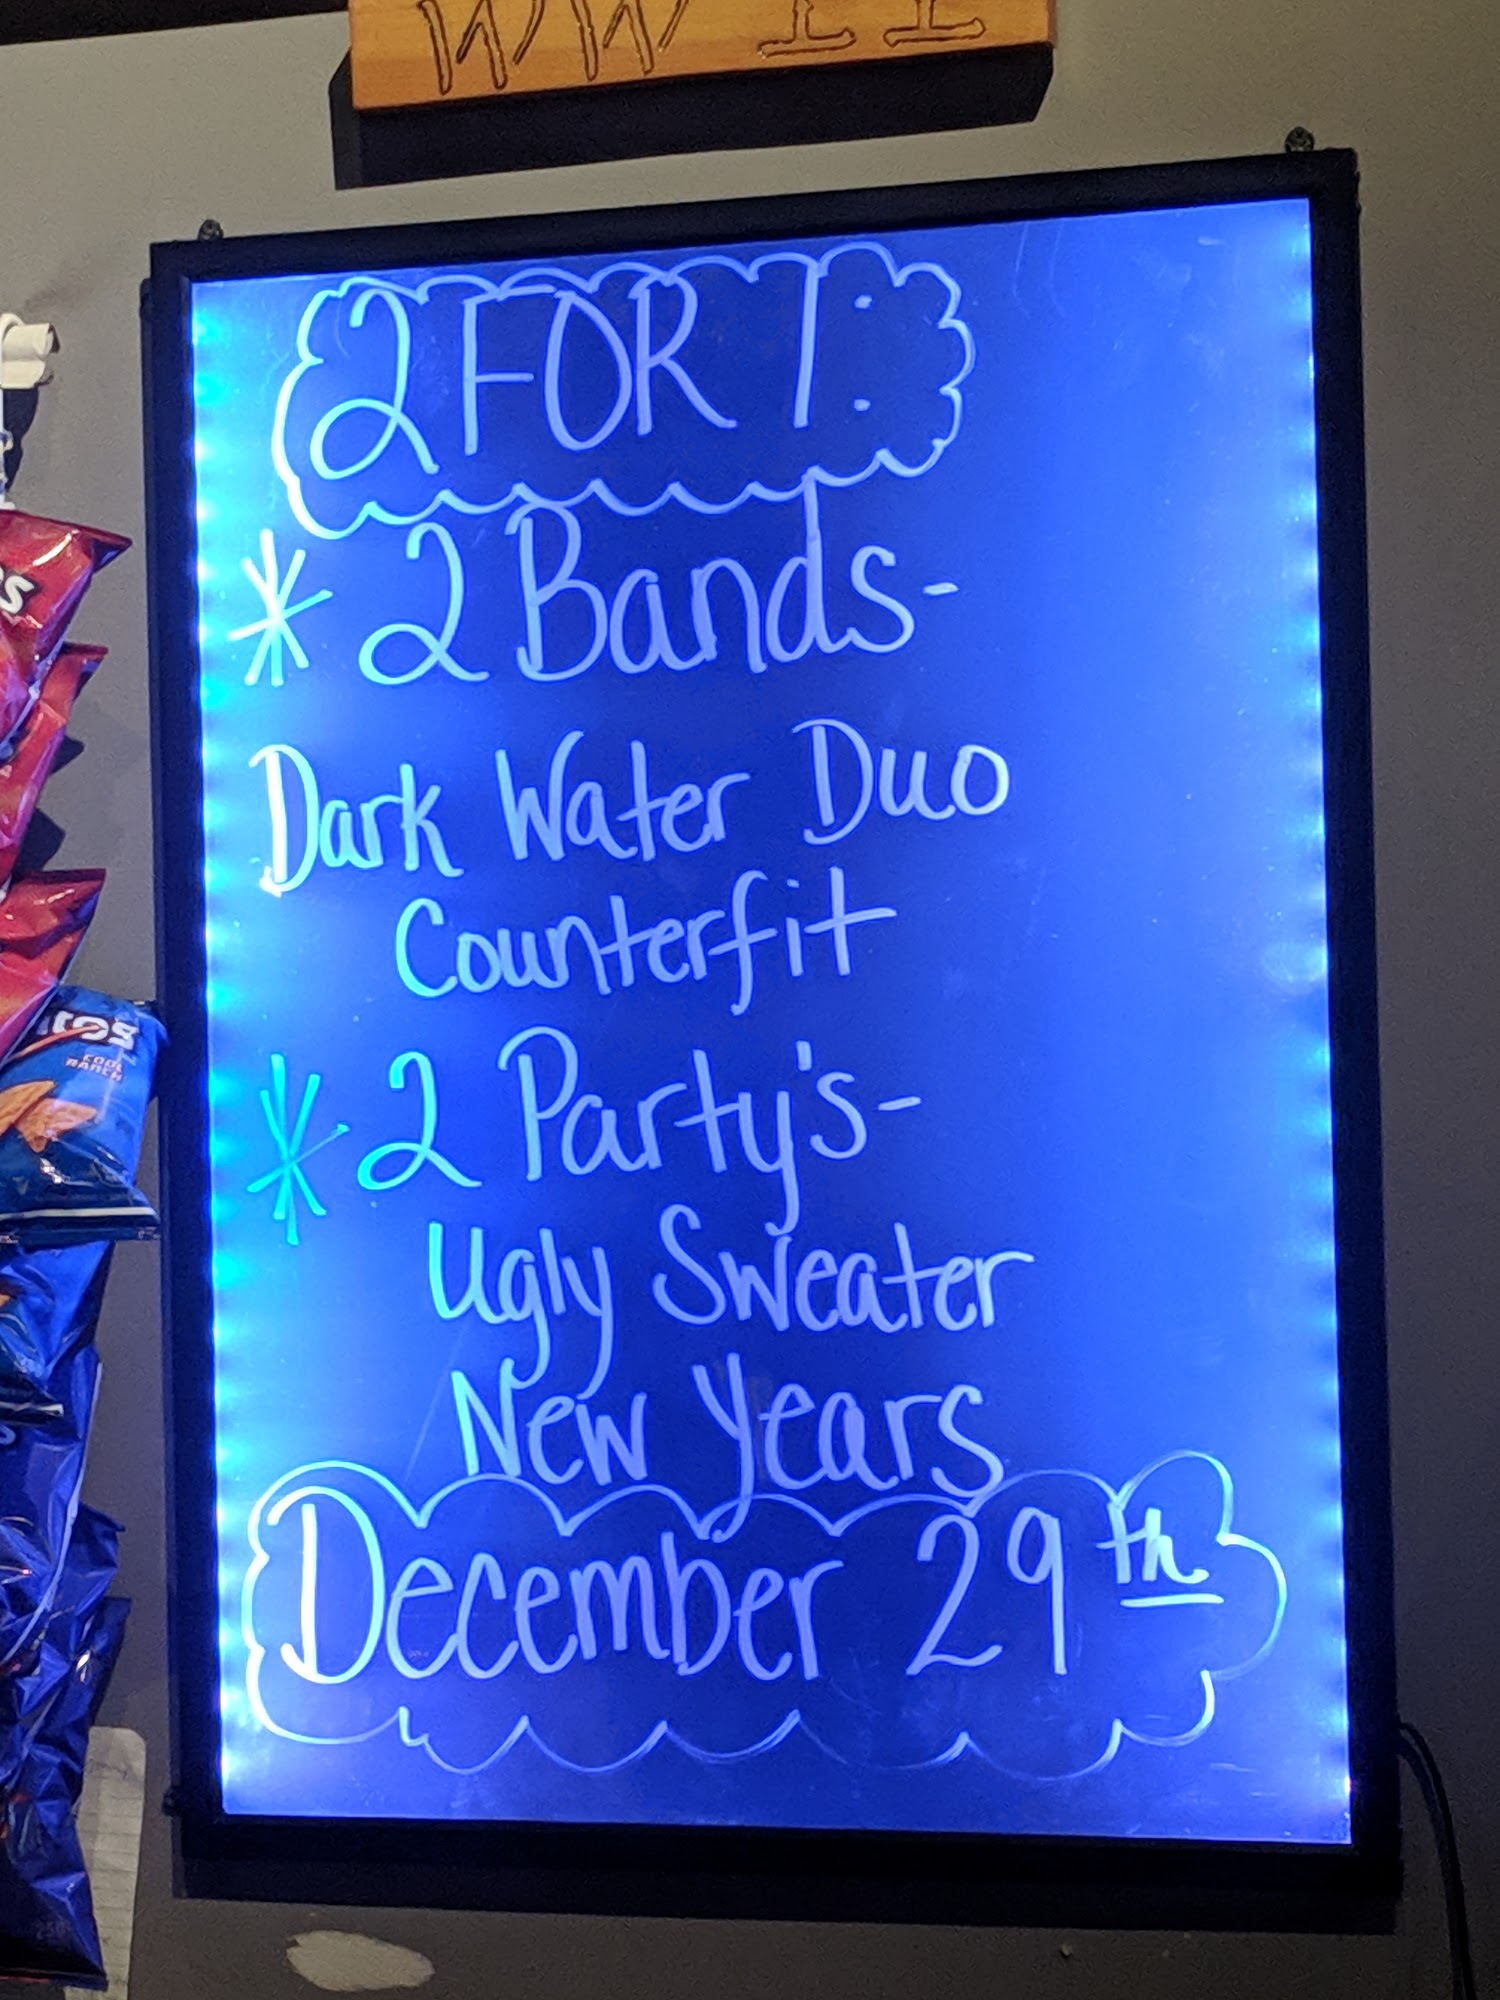 WW II
2 FOR 1:
* 2 Bands-
Dark Water Duo
Counterfit
* 2 Party's-
Ugly Sweater
New Years
December 29th
COOL
RANCH